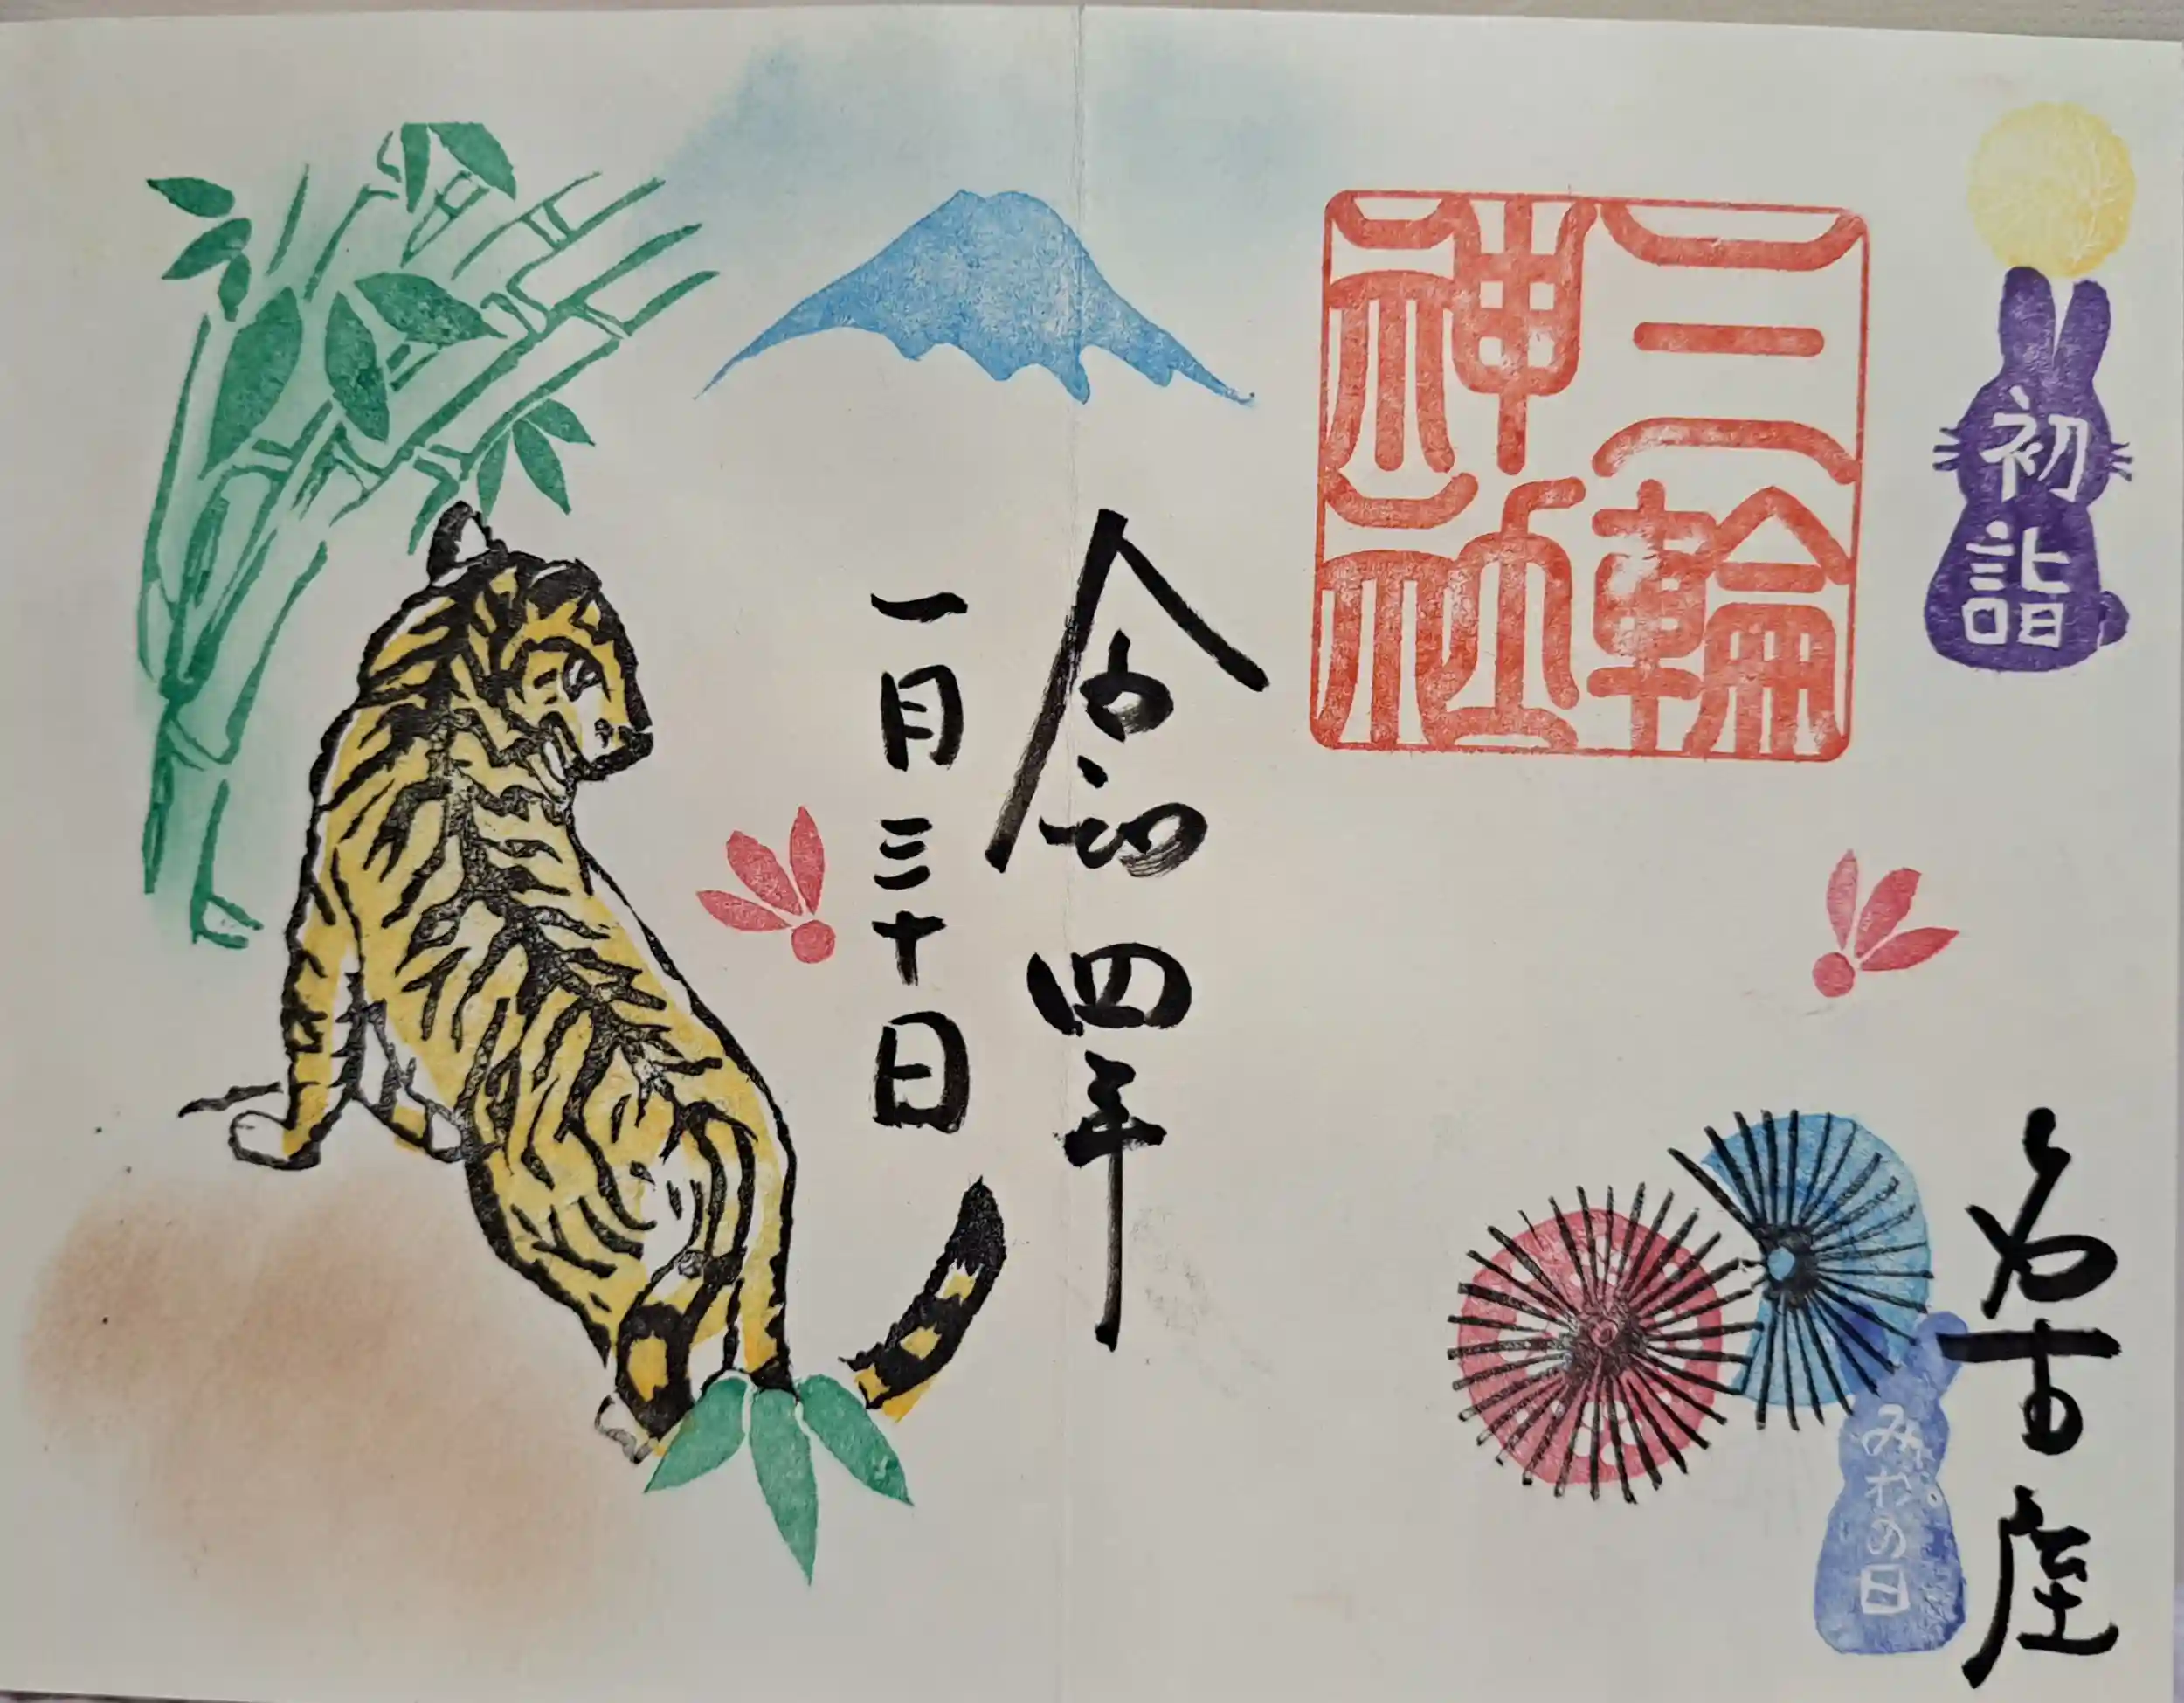 初詣
三輪
神社
名古座
みわの日
令和四年
一月三十日